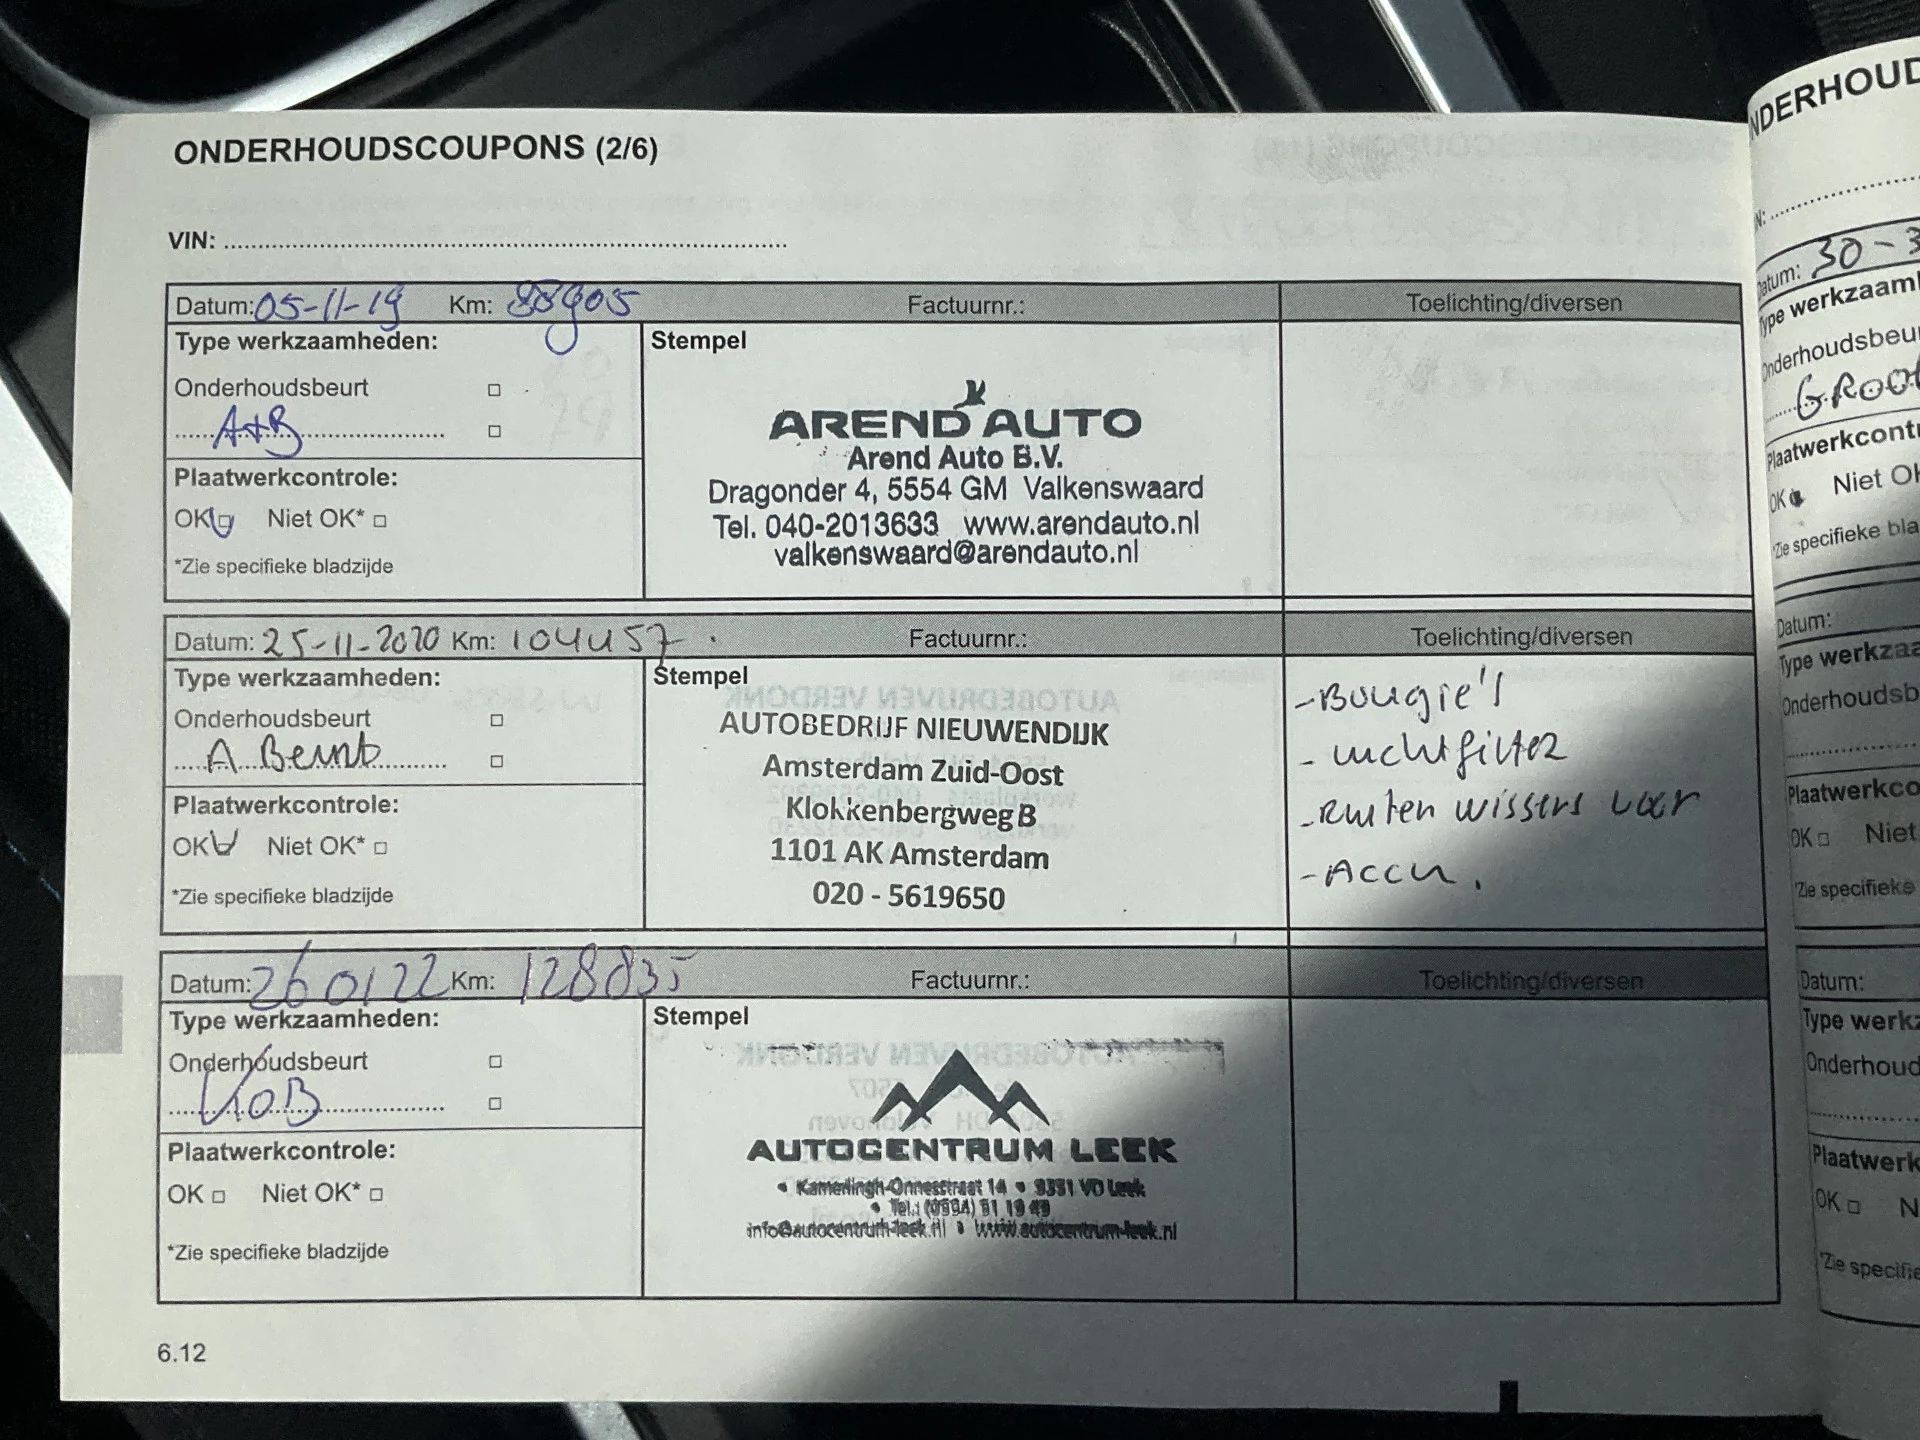 ONDERHOUDSCOUPONS (2/6)
VIN: ....................
Datum: 05-11-19 Km: 88905 Factuurnr.: Toelichting/diversen
Type werkzaamheden:
Stempel
Onderhoudsbeurt
A+B
Plaatwerkcontrole:
OK Niet OK*
*Zie specifieke bladzijde
AREND AUTO
Arend Auto B.V.
Dragonder 4, 5554 GM Valkenswaard
Tel. 040-2013633 www.arendauto.nl
valkenswaard@arendauto.nl
Datum: 25-11-2020 Km: 104457 Factuurnr.: Toelichting/diversen
Type werkzaamheden:
Stempel
Onderhoudsbeurt
A Beurt
Plaatwerkcontrole:
OK Niet OK*
*Zie specifieke bladzijde
AUTOBEDRIJF NIEUWENDIJK
Amsterdam Zuid-Oost
Klokkenbergweg B
1101 AK Amsterdam
020 - 5619650
- Bougie's
- Luchtfilter
- Ruiten wissers voor
- Accu.
Datum: 260122 Km: 128835 Factuurnr.: Toelichting/diversen
Type werkzaamheden:
Stempel
Onderhoudsbeurt
KOB
Plaatwerkcontrole:
OK Niet OK*
*Zie specifieke bladzijde
AUTOCENTRUM LEEK
• Kamerlingh-Onnesstraat 14 • 9351 VD Leek
• Tel.: (0594) 51 19 49
info@autocentrum-leek.nl • www.autocentrum-leek.nl
6.12
NDERHOUD
Datum: 30-3
Type werkzaamh
Onderhoudsbeu
GROOT
Plaatwerkcontr
OK Niet OK
*Zie specifieke bla
Datum:
Type werkzaa
Onderhoudsb
Plaatwerkco
OK Niet
*Zie specifieke
Datum:
Type werkz
Onderhoud
Plaatwerk
OK N
*Zie specifie